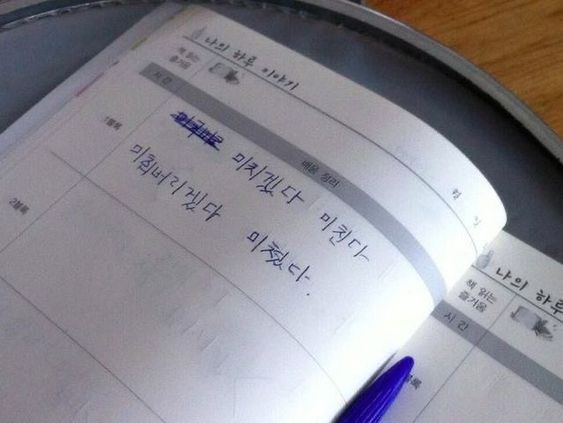 나의 하루 이야기
책 읽는
즐거움
시 간
배움 정리
1블록
미치겠다 미친다
미쳐버리겠다 미쳤다.
2블록
나의 하루
책 읽는
즐거움
시 간